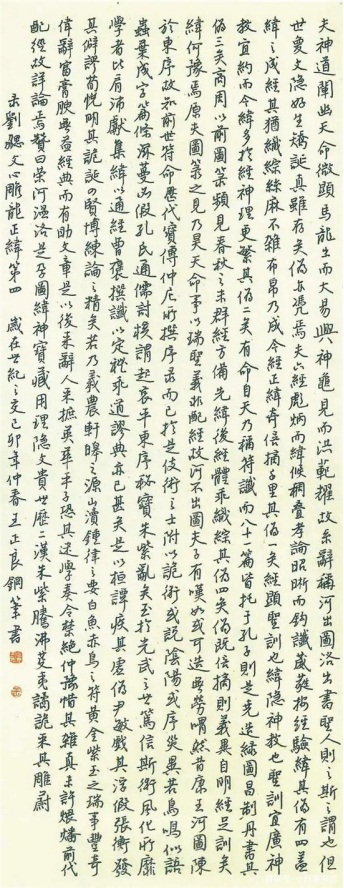 夫神道闡幽天命微顯馬龍出而大易興神龜見而洪範耀故系辭稱河出圖洛出書聖人則之斯之謂也但
世夐文隱好生矯誕真雖存矣偽亦憑焉夫六經彪炳而緯候稠疊孝論昭晰而鉤讖葳蕤按經驗緯其偽有四蓋
緯之成經其猶織綜絲麻不雜布帛乃成今經正緯奇倍摘千里其偽一矣經顯聖訓也緯隱神教也聖訓宜廣神
教宜約而今緯多於經神理更繁其偽二矣有命自天乃稱符讖而八十一篇皆托于孔子則是堯造綠圖昌制丹書其
偽三矣商周以前圖籙頻見春秋之末群經方備先緯後經體乖織綜其偽四矣偽既倍摘則義異自明經足訓矣
緯何豫焉原夫圖籙之見乃昊天命事以瑞聖義非配經故河不出圖夫子有嘆如或可造無勞喟然昔康王河圖陳
於東序故知前世符命歷代寶傳仲尼所撰序录而已於是伎術之士附以詭術或說陰陽或序災異若鳥鳴似語
蟲葉成字篇條滋蔓必假孔氏通儒討核謂起哀平東序秘寶朱紫亂矣至於光武之世篤信斯術風化所靡
學者比肩沛獻集緯以通經曹褒撰讖以定禮乖道謬典亦已甚矣是以桓譚疾其虛偽尹敏戲其浮假張衡發
其僻謬荀悅明其詭誕四賢博練論之精矣若乃羲農軒皞之源山瀆鍾律之要白魚赤烏之符黃金紫玉之瑞事豐奇
偉辭富膏腴無益經典而有助文章是以後來辭人采摭英華平子恐其迷學奏令禁絕仲豫惜其雜真未許煨燔前代
配經故詳論焉贊曰榮河溫洛是孕圖緯神寶藏用理隱文貴世歷二漢朱紫騰沸芟夷譎詭采其雕蔚
录劉勰文心雕龍正緯第四 歲在世紀之交己卯年仲春王正良鋼筆書